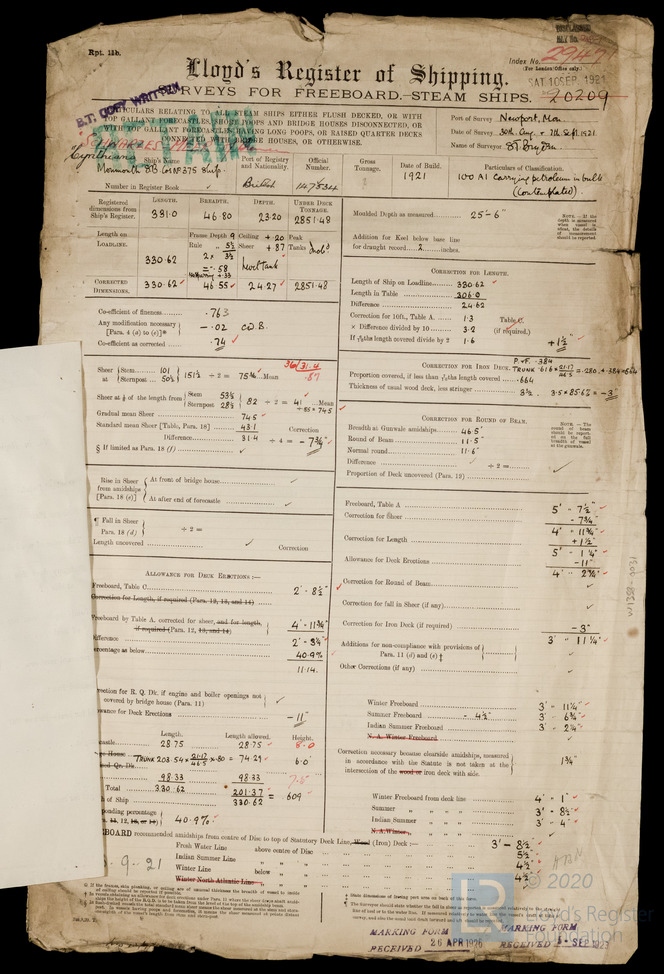 Rpt. 11b.
Index No. 29447
(For London Office only.)
Lloyd's Register of Shipping.
SAT 10 SEP. 1921
SURVEYS FOR FREEBOARD.—STEAM SHIPS. 20209
B.T. COPY WRITTEN
PARTICULARS RELATING TO STEAM SHIPS EITHER FLUSH DECKED, OR WITH
TOP GALLANT FORECASTLES, SHORT POOPS AND BRIDGE HOUSES DISCONNECTED, OR
WITH TOP GALLANT FORECASTLES, HAVING LONG POOPS, OR RAISED QUARTER DECKS
CONNECTED WITH BRIDGE HOUSES, OR OTHERWISE.
Port of Survey Newport, Mon.
Date of Survey 30th Aug. & 7th Sept. 1921
Name of Surveyor
Ship's Name
Monmouth SB Co No 375 Ship.
Number in Register Book
Port of Registry and Nationality.
British
Official Number.
147534
Gross Tonnage.
Date of Build.
1921
Particulars of Classification.
100 A1 Carrying petroleum in bulk
(Contemplated).
Registered dimensions from Ship's Register.
LENGTH. BREADTH. DEPTH. UNDER DECK TONNAGE.
381.0 46.80 23.20 2851.48
Length on LOADLINE.
330.62
Frame Depth 9
Rule 5½
2 x 3½
= .58
Ceiling + 20
Sheer + 87
Peak Tanks
CORRECTED DIMENSIONS. 330.62 46.55 24.27 2851.48
Moulded Depth as measured 25-6"
Addition for Keel below base line
for draught record 2 inches.
NOTE.—If the depth is measured when vessel is afloat, the details of measurement should be reported.
CORRECTION FOR LENGTH.
Length of Ship on Loadline 330.62
Length in Table 306.0
Difference 24.62
Correction for 10ft., Table A. 1.3
× Difference divided by 10 3.2
If 6/10ths length covered divide by 2 1.6
Table C. (if required.)
+1½"
Co-efficient of fineness .763
Any modification necessary
[Para. 4 (d) to (e)]* -.02 C.D.B.
Co-efficient as corrected .74
Sheer at { Stem 101
Sternpost 50½ } 151½ ÷ 2 = 75¾ Mean
Sheer at ⅛ of the length from { Stem 53½
Sternpost 28½ } 82 ÷ 2 = 41 Mean
Gradual mean Sheer 74.5
Standard mean Sheer [Table, Para. 18] 43.1
Difference 31.4 ÷ 4 = -7¾"
Correction
§ If limited as Para. 18 (f)
CORRECTION FOR IRON DECK.
P. & F. .384
TRUNK .616 x 21.17/46.5 = .280 + .384 = .664
Proportion covered, if less than 7/10ths length covered .664
Thickness of usual wood deck, less stringer 3½. 3.5 x 85.6% = -3"
CORRECTION FOR ROUND OF BEAM.
Breadth at Gunwale amidships 46.5
Round of Beam 11.5
Normal round 11.6
Difference ÷ 2 =
Proportion of Deck uncovered (Para. 19)
NOTE.—The round of beam should be reported on the full breadth of vessel at the gunwale.
Rise in Sheer from amidships [Para. 18 (e)] { At front of bridge house
At after end of forecastle
¶ Fall in Sheer
Para. 18 (d) } ÷ 2 =
Length uncovered
Correction
Freeboard, Table A 5' - 7½"
Correction for Sheer - 7¾"
4' - 11¾"
Correction for Length +1½"
5' - 1¼"
Allowance for Deck Erections -11"
4' 2¼"
Correction for Round of Beam
Correction for fall in Sheer (if any)
Correction for Iron Deck (if required) -3"
3' 11¼"
Additions for non-compliance with provisions of
Para. 11 (d) and (e) ‡
Other Corrections (if any)
ALLOWANCE FOR DECK ERECTIONS:—
Freeboard, Table C 2' - 8½"
Correction for Length, if required (Para. 12, 13, and 14)
Freeboard by Table A. corrected for sheer, and for length,
if required (Para. 12, 13, and 14) 4' - 11¾"
Difference 2' - 3¼"
Percentage as below 40.9%
11.14.
Correction for R. Q. Dk. if engine and boiler openings not
covered by bridge house (Para. 11)
Allowance for Deck Erections -11"
Length. Length allowed. Height.
28.75 28.75 8.0
TRUNK 203.54 x 21.17/46.5 x .80 = 74.29 6.0
98.33 98.33 7.5
Total 330.62 201.37 = .609
of Ship 330.62
40.9%
Winter Freeboard 3' - 11¼"
Summer Freeboard - 4½" 3' - 6¾"
Indian Summer Freeboard 3' - 2¼"
N. A. Winter Freeboard
Correction necessary because clearside amidships, measured
in accordance with the Statute is not taken at the
intersection of the wood or iron deck with side. 1¾"
Winter Freeboard from deck line 4' - 1"
Summer " " " " 3' - 8½"
Indian Summer " " " " 3' - 4"
N.A. Winter " "
FREEBOARD recommended amidships from centre of Disc to top of Statutory Deck Line, Wood (Iron) Deck:— 3' - 8½"
Fresh Water Line above centre of Disc 5½"
Indian Summer Line " " 4½"
Winter Line below " " 4½"
Winter North Atlantic Line " "
9. 21
W1358-0031
MARKING FORM
RECEIVED 26 APR 1926
MARKING FORM
RECEIVED
© 2020
Lloyd's Register
Foundation